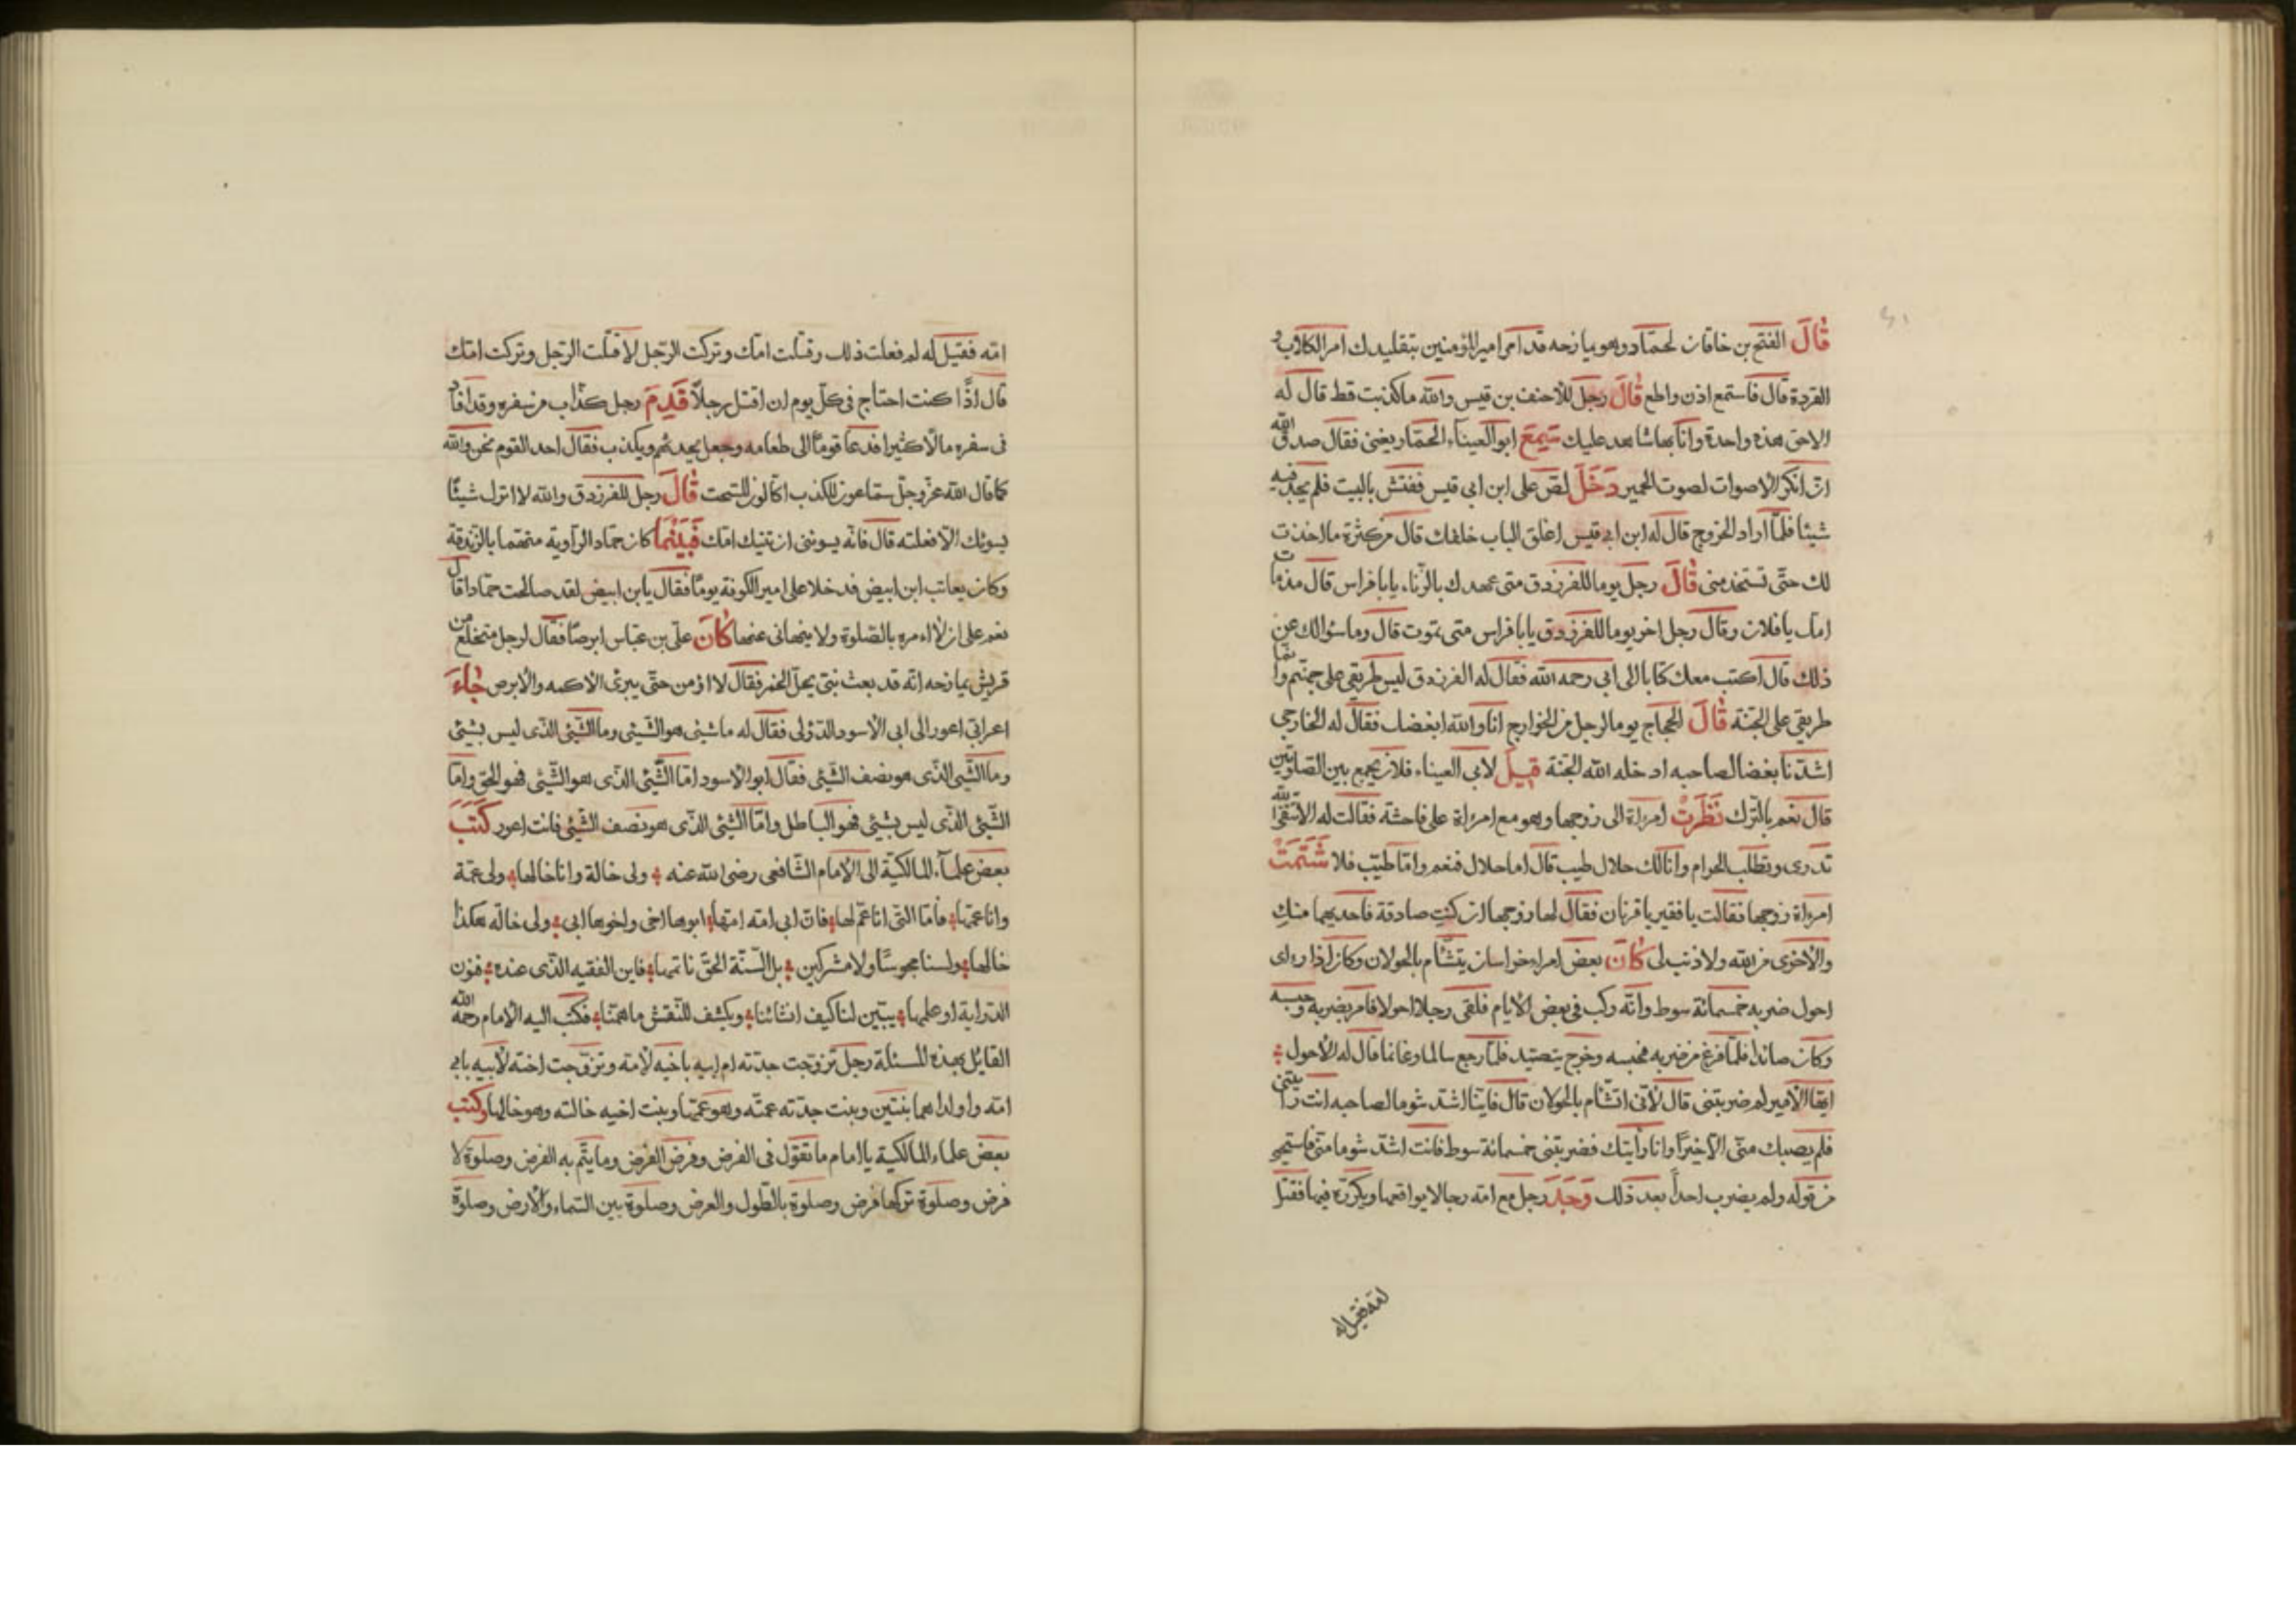 قَالَ الفتح بن خاقان لحمّاد وهو يمازحه قد امر امير المؤمنين بتقليدك امر الكلاب و
القردة قال فاستمع اذن واطع قَالَ رجل للاحنف بن قيس والله ماكذبت قط قال له
الاحق هذه واحدة وانا بها شاهد عليك سَمِعَ ابو العيناء الحمّار يغنى فقال صدق الله
ان انكر الاصوات لصوت الحمير دَخَلَ لصّ على ابن ابى قيس ففتش بالبيت فلم يجد فيه
شيئا فلمّا اراد الخروج قال له ابن ابى قيس اغلق الباب خلفك قال من كثرة ما اخذت
لك حتّى تستخدمنى قَالَ رجل يوما للفرزدق متى عهدك بالزّناء يابا فراس قال مذ ماتت
امك يا فلان وقال رجل اخر يوما للفرزدق يابا فراس متى تموت قال وما سؤالك عن
ذلك قال اكتب معك كتابا الى ابى رحمه الله فقال له الفرزدق ليس طريقى على جهنّم وانّما
طريقى على الجنّة قَالَ الحجاج يوما لرجل من الخوارج انا والله ابغضك فقال له الخارجى
اشدّنا بغضا لصاحبه ادخله الله الجنة قيلَ لابى العيناء فلان يجمع بين الصلوتين
قال نعم بالتّرك نَظَرَتْ امراة الى زوجها وهو مع امراة على فاحشة فقالت له الا تتقى الله
تدرى وتطلب الحرام وانا لك حلال طيب قال اما حلال فنعم وامّا طيّب فلا شَتَمَتْ
امراة زوجها فقالت يا فقير يا قرنان فقال لها زوجها ان كنتِ صادقة فاحديهما منكِ
والاخرى من الله ولا ذنب لى كَانَ بعض امراء خراسان يتشأم بالحولان وكان اذا رءاى
احول ضربه خمسمائة سوط وانّه ركب فى بعض الايام فلقى رجلا احولا فامر بضربه وحبسه
وكان صائدا فلمّا فرغ من ضربه فحبسه وخرج يتصيّد فلمّا رجع سالما وغانما قال له الاحول
ايها الامير لم ضربتنى قال لانّى اتشّأم بالحولان قال فايّنا اشدّ شوما لصاحبه انت رايتنى
فلم يصبك منّى الّا خيرًا وانا رأيتك فضربتنى خمسمائة سوط فانت اشدّ شوما منّى فاستحيى
من قوله ولم يضرب احداً بعد ذلك وَجَدَ رجل مع امّه رجالا يواقعها ويكررّه فيها فقتل
امّه فقيل له
امّه فقيل له لم فعلت ذلك وقتلت امّك وتركت الرّجل لا قتلت الرّجل وتركت امّك
قال اذًا كنت احتاج فى كلّ يوم ان اقتل رجلاً قَدِمَ رجل كذّاب من سفره وقد افاد
فى سفره مالًا كثيرا فدعا قومًا الى طعامه وجعل يحدثهم ويكذب فقال احد القوم نحن والله
كما قال الله عزّ وجلّ سمّاعون للكذب اكّالون للسّحت قَالَ رجل للفرزدق والله لا اترك شيئًا
يسوئك الّا فعلته قال فانّه يسوئنى ان تنيك امّك فَبَيْنَمَا كان حمّاد الرّاوية متّهما بالزّندقة
وكان يعاتب ابن ابيض فدخلا على امير الكوفة يومًا فقال يابن ابيض لقد صالحت حمّادا قال
نعم على ان لا اءمره بالصّلوة ولا ينهانى عنها كَانَ علىّ بن عبّاس ابرصًا فقال لرجل متخلّع من
قريش يمازحه انّه قد بعث نبىّ يحلّ الخمر فقال لا اؤمن حتّى يبرئ الاكمه والابرص جَاءَ
اعرابىّ اعور الى ابى الاسود الدّؤلى فقال له ما شيئى هو الشّيئى وما الشّيئى الذّى ليس بشيئى
وما الشّيئى الذّى هو نصف الشّيئى فقال ابو الاسود امّا الشّيئى الذّى هو الشّيئى فهو الحقّ وامّا
الشّيئى الذّى ليس بشيئى فهو الباطل وامّا الشّيئى الذّى هو نصف الشّيئى فانت اعور كَتَبَ
بعض علمآء المالكيّة الى الامام الشّافعى رضى الله عنه ولى خالة وانا خالها ولى عمّة
وانا عمّها فامّا التّى انا عمّ لها فانّ ابى امّه امّها ابوها اخى واخوها ابى ولى خالة هكذا
خالها ولسنا مجوسًا ولا مشركين بل السّنّة الحقّ ناتمها فاين الفقيه الذّى عنده فنون
الدّراية او علمها يبيّن لنا كيف انشائنا ويكشف للنّقش ما همّنا فكتب اليه الامام رحمه الله
القايل بهذه المسئلة رجل تزوّجت جدّته ام ابيه باخيه لامّه وتزوّجت اخته لابيه بابى
امّه واولداهما بنتين وبنت جدّته عمتّه وهو عمّها وبنت اخيه خالته وهو خالها وكتب
بعض علماء المالكية يا امام ما تقول فى الفرض وفرض الفرض وما يتّم به الفرض وصلوة لا
فرض وصلوة تركها فرض وصلوة بالطّول والعرض وصلوة بين السّماء والارض وصلوة